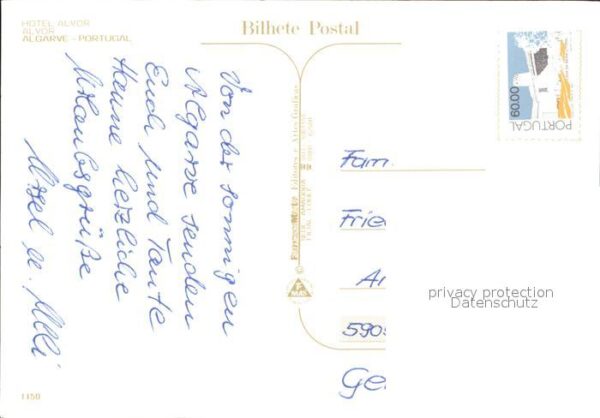 HOTEL ALVOR
ALVOR
ALGARVE - PORTUGAL
Bilhete Postal
60.00
PORTUGAL
Von der sonnigen
Algarve senden
Euch und Tante
Hanne herzliche
Urlaubsgrüße
Fam.
Frie
A
590
Ge
privacy protection
Datenschutz
1150